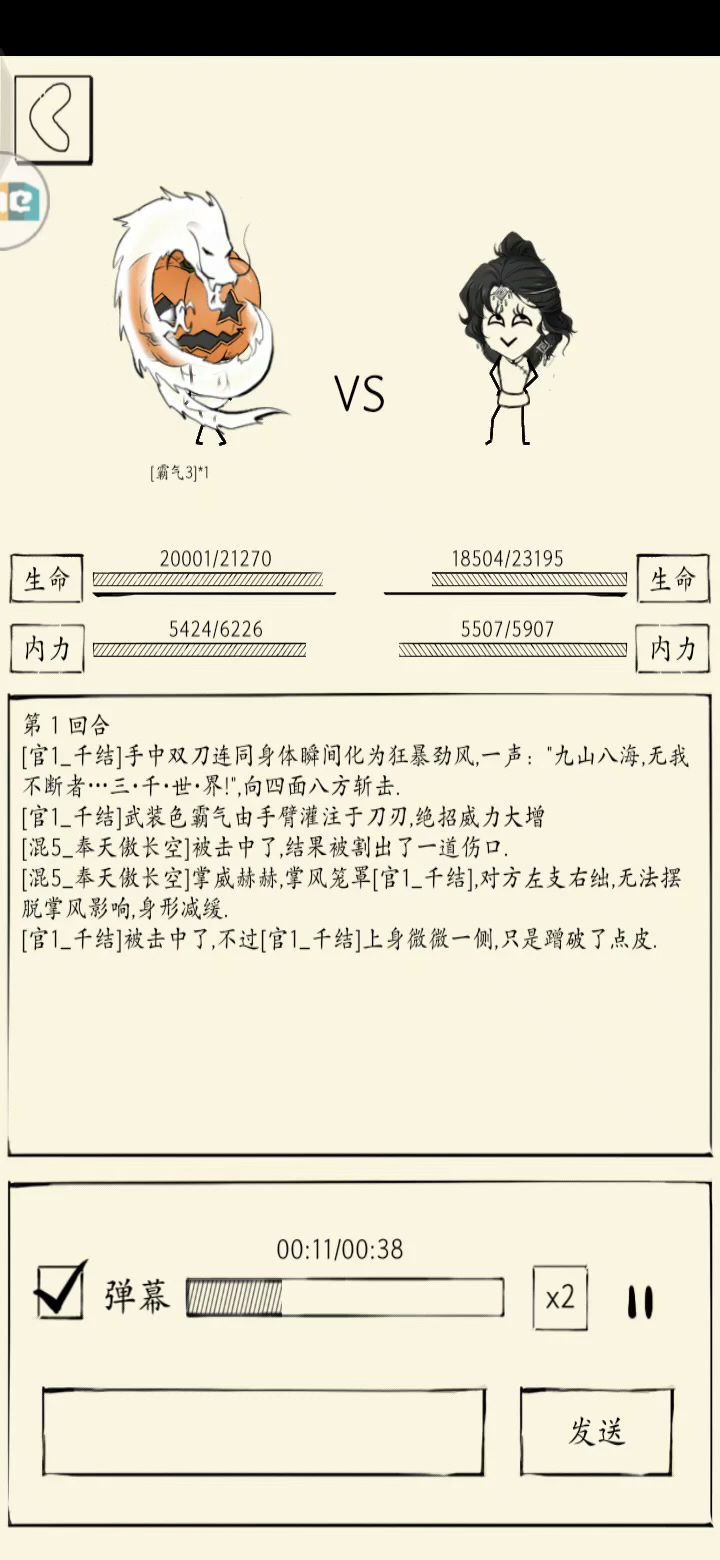 VS
[霸气3]*1
20001/21270
18504/23195
生命
生命
5424/6226
5507/5907
内力
内力
第 1 回合
[官1_千结]手中双刀连同身体瞬间化为狂暴劲风,一声："九山八海,无我
不断者…三·千·世·界!",向四面八方斩击.
[官1_千结]武装色霸气由手臂灌注于刀刃,绝招威力大增
[混5_奉天傲长空]被击中了,结果被割出了一道伤口.
[混5_奉天傲长空]掌威赫赫,掌风笼罩[官1_千结],对方左支右绌,无法摆
脱掌风影响,身形减缓.
[官1_千结]被击中了,不过[官1_千结]上身微微一侧,只是蹭破了点皮.
00:11/00:38
弹幕
x2
发送